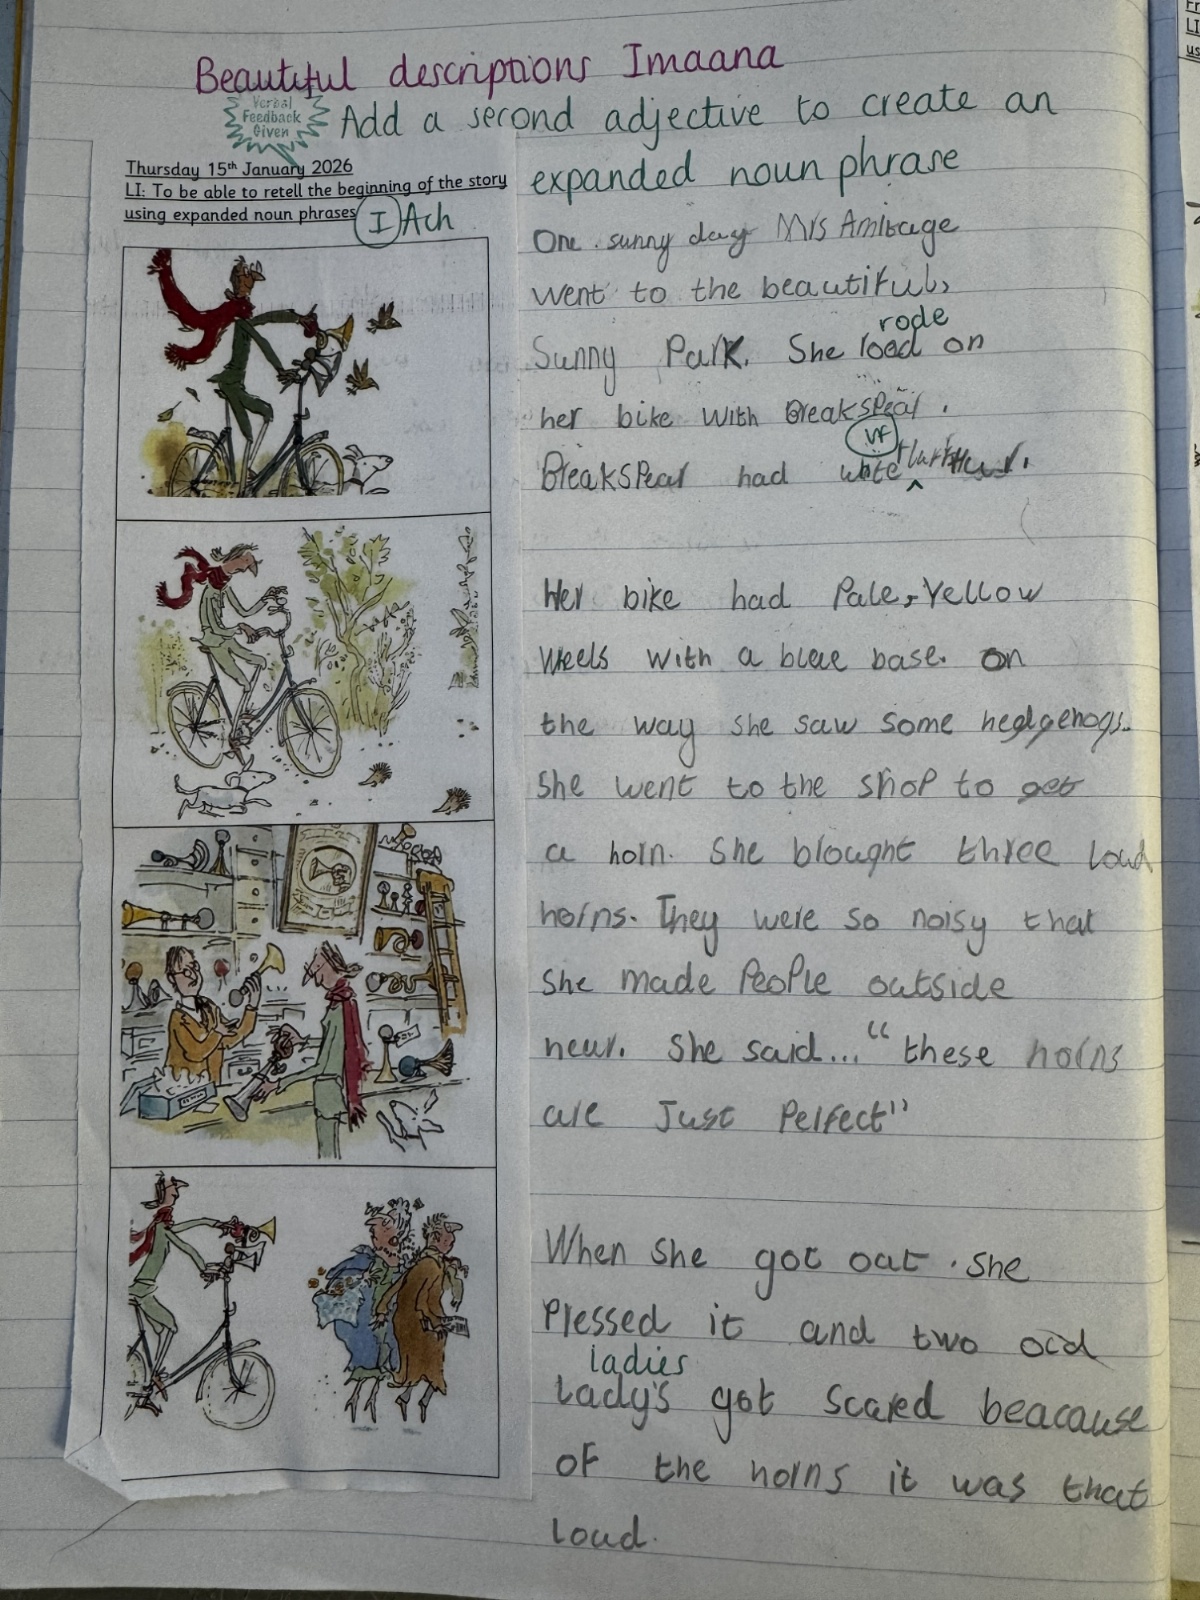 Beautiful descriptions Imaana
Verbal
Feedback
Given
Add a second adjective to create an
expanded noun phrase
Thursday 15th January 2026
LI: To be able to retell the beginning of the story
using expanded noun phrases
I Ach
One sunny day Mrs Amitage
went to the beautiful,
rode
Sunny Park. She load on
her bike with Breakspear.
VF
Breakspear had white
Her bike had Pale, Yellow
weels with a blue base. on
the way she saw some hedgehogs.
She went to the shop to get
a horn. She brought three loud
horns. They were so noisy that
she made People outside
near. She said... "these horns
are Just Perfect"
When she got out. She
Pressed it and two old
ladies
Lady's got scared beacause
of the horns it was that
loud.